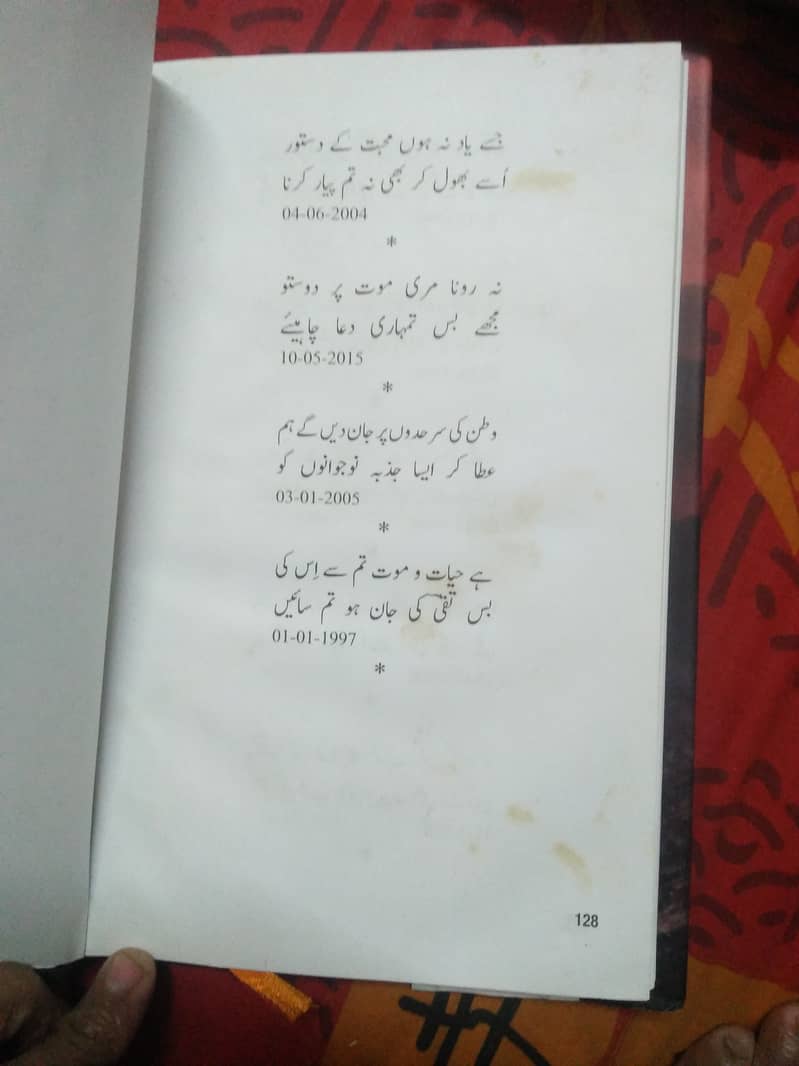 جسے یاد نہ ہوں محبت کے دستور
اُسے بھول کر بھی نہ تم پیار کرنا
04-06-2004
*
نہ رونا مری موت پر دوستو
مجھے بس تمہاری دعا چاہیئے
10-05-2015
*
وطن کی سرحدوں پر جان دیں گے ہم
عطا کر ایسا جذبہ نوجوانوں کو
03-01-2005
*
ہے حیات و موت تم سے اِس کی
بس تقیؔ کی جان ہو تم سائیں
01-01-1997
*
128